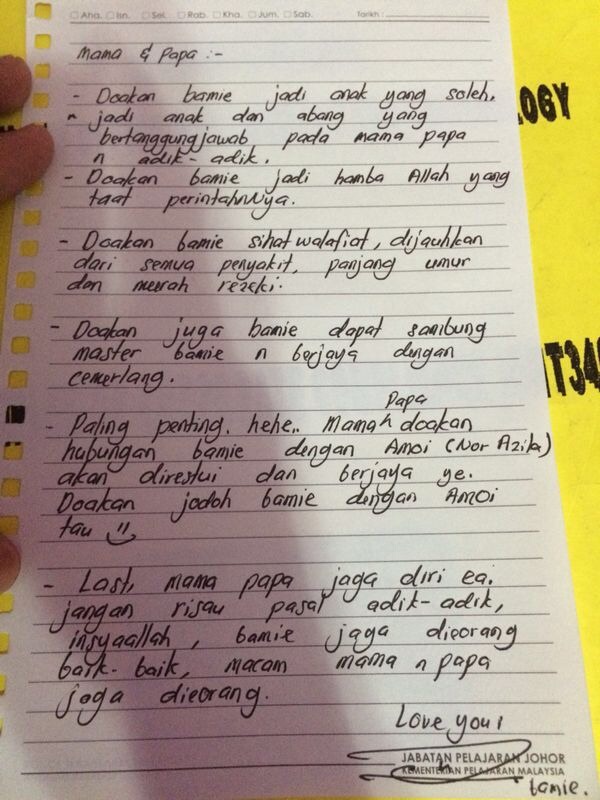 Aha. Isn. Sel. Rab. Kha. Jum. Sab. Tarikh :
Mama & Papa :-
- Doakan bamie jadi anak yang soleh.
~ jadi anak dan abang yang
bertanggungjawab pada mama papa
n adik-adik.
- Doakan bamie jadi hamba Allah yang
taat perintahNya.
- Doakan bamie sihat walafiat, dijauhkan
dari semua penyakit, panjang umur
dan murah rezeki.
- Doakan juga bamie dapat sambung
master bamie n berjaya dengan
cemerlang.
- Paling penting. hehe.. Mama ^ Papa doakan
hubungan bamie dengan Amoi (Nor Azila)
akan direstui dan berjaya ye.
Doakan jodoh bamie dengan AMOI
tau
- Last, mama papa jaga diri ea.
jangan risau pasal adik-adik,
insyaallah, bamie jaga dieorang
baik-baik, macam mama n papa
jaga dieorang.
Love you!
JABATAN PELAJARAN JOHOR
KEMENTERIAN PELAJARAN MALAYSIA
bamie.
LOGY
IT34